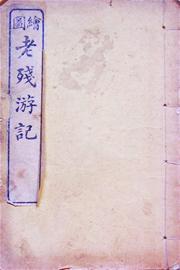 繪圖
老殘游記